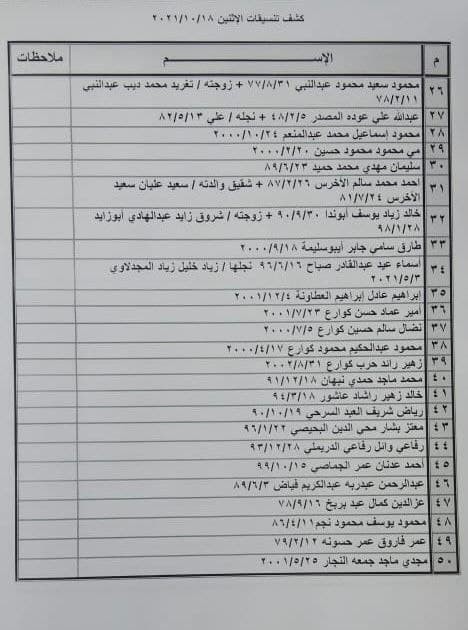 كشف تنسيقات الاثنين ٢٠٢١/١٠/١٨
م الإســـم ملاحظات
٢٦ محمود سعيد محمود عبدالنبي ٧٧/٨/٣١ + زوجته / تغريد محمد ديب عبدالنبي
٧٨/٢/١١
٢٧ عبدالله علي عوده المصدر ٤٨/٢/٥ + نجله / علي ٨٢/٥/١٣
٢٨ محمود إسماعيل محمد عبدالمنعم ٢٠٠٠/١٠/٢٤
٢٩ مي محمود محمود حسين ٢٠٠٠/٢/٢٠
٣٠ سليمان مهدي محمد حميد ٨٩/٦/٢٣
٣١ احمد محمد سالم الأخرس ٨٧/٢/٢٦ + شقيق والدته / سعيد عليان سعيد
الأخرس ٨١/٧/٢٤
٣٢ خالد زياد يوسف أبوندا ٩٠/٩/٣٠ + زوجته / شروق زايد عبدالهادي أبوزايد
٩٨/١/٢٨
٣٣ طارق سامي جابر أبوسليمة ٢٠٠٠/٩/١٨
٣٤ أسماء عيد عبدالقادر صباح ٩٦/٦/١٦ نجلها / زياد خليل زياد المجدلاوي
٢٠٢١/٥/٣
٣٥ إبراهيم عادل إبراهيم العطاونة ٢٠٠١/١٢/٤
٣٦ أمير عماد حسن كوارع ٢٠٠١/٧/٢٣
٣٧ نضال سالم حسين كوارع ٢٠٠٠/٧/٥
٣٨ محمود عبدالحكيم محمود كوارع ٢٠٠٠/٤/١٧
٣٩ زهير رائد حرب كوارع ٢٠٠٢/٨/٣١
٤٠ محمد ماجد حمدي نبهان ٩١/١٢/١٨
٤١ خالد زهير راشاد عاشور ٩٤/٣/١٨
٤٢ رياض شريف العبد السرحي ٩٠/١٠/١٩
٤٣ معتز بشار محي الدين البحيصي ٩٦/١/٢٢
٤٤ رفاعي وائل رفاعي الدريملي ٩٣/١٢/٢٨
٤٥ أحمد عدنان عمر الجماصي ٩٩/١٠/١٥
٤٦ عبدالرحمن عبدربه عبدالكريم فياض ٨٩/٦/٣
٤٧ عزالدين كمال عبد بريخ ٧٨/٩/١٦
٤٨ محمود يوسف محمود نجم ٨٦/٤/١١
٤٩ عمر فاروق عمر حسونه ٧٩/٢/١٢
٥٠ مجدي ماجد جمعه النجار ٢٠٠١/٥/٢٥